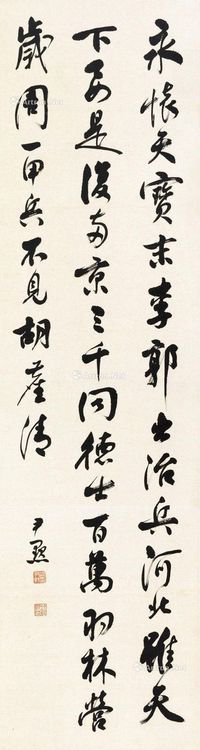 永懷天寶末李郭出治兵河北雖未
下要是復兩京三千同德士百萬羽林營
歲周一甲兵不見胡塵清
尹默